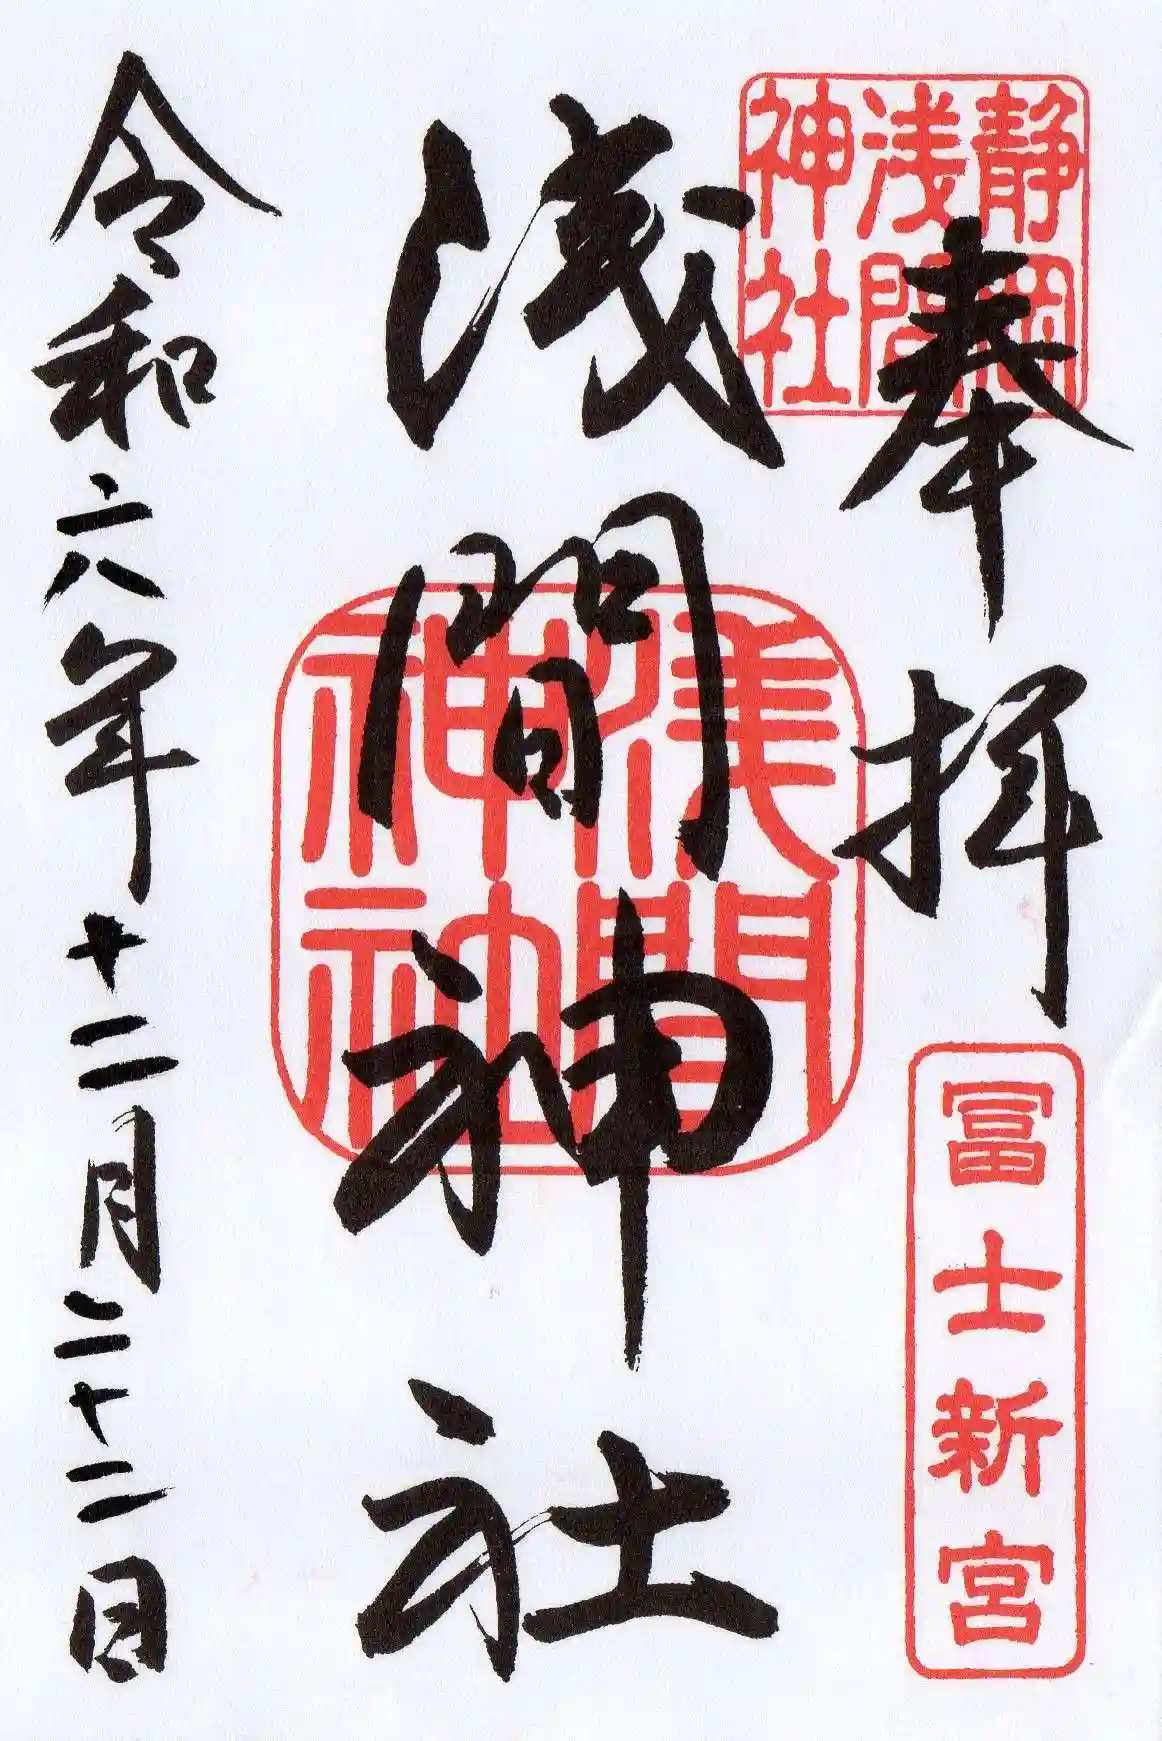 奉拝
静岡
浅間
神社
冨士新宮
浅間神社
浅間
神社
令和六年十二月二十二日